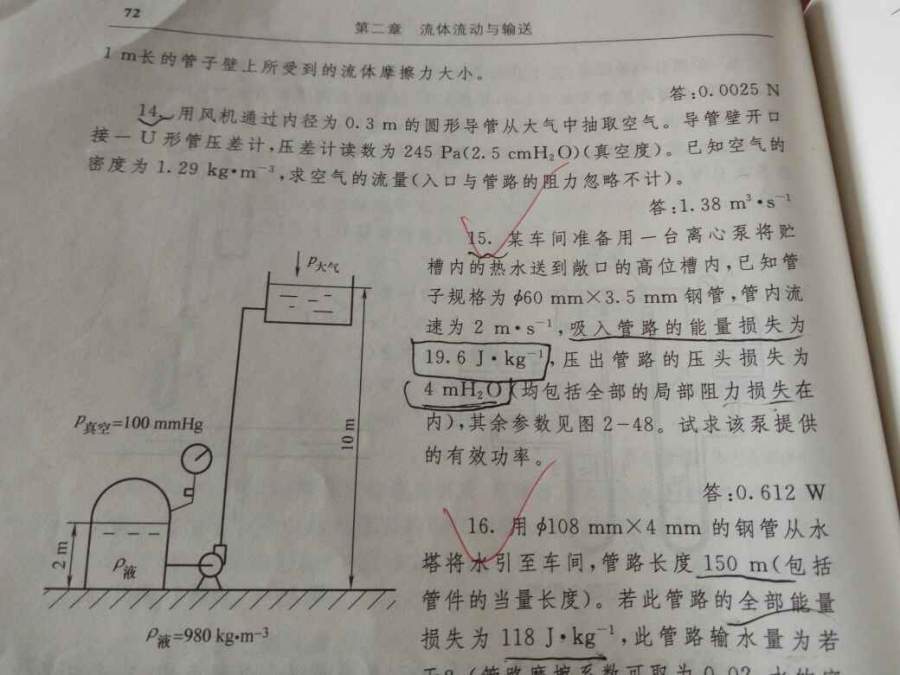 72
第二章 流体流动与输送
1 m长的管子壁上所受到的流体摩擦力大小。
答:0.0025 N
14. 用风机通过内径为 0.3 m 的圆形导管从大气中抽取空气。导管壁开口
接一 U 形管压差计,压差计读数为 245 Pa(2.5 cmH₂O)(真空度)。已知空气的
密度为 1.29 kg·m⁻³,求空气的流量(入口与管路的阻力忽略不计)。
答:1.38 m³·s⁻¹
15. 某车间准备用一台离心泵将贮
槽内的热水送到敞口的高位槽内,已知管
子规格为 ϕ60 mm×3.5 mm 钢管,管内流
速为 2 m·s⁻¹,吸入管路的能量损失为
19.6 J·kg⁻¹,压出管路的压头损失为
4 mH₂O(均包括全部的局部阻力损失在
内),其余参数见图 2-48。试求该泵提供
的有效功率。
答:0.612 W
16. 用 ϕ108 mm×4 mm 的钢管从水
塔将水引至车间,管路长度 150 m(包括
管件的当量长度)。若此管路的全部能量
损失为 118 J·kg⁻¹,此管路输水量为若
干?(管路摩擦系数可取为 0.02,水的密
p大气
p真空=100 mmHg
10 m
2 m
ρ液
ρ液=980 kg·m⁻³